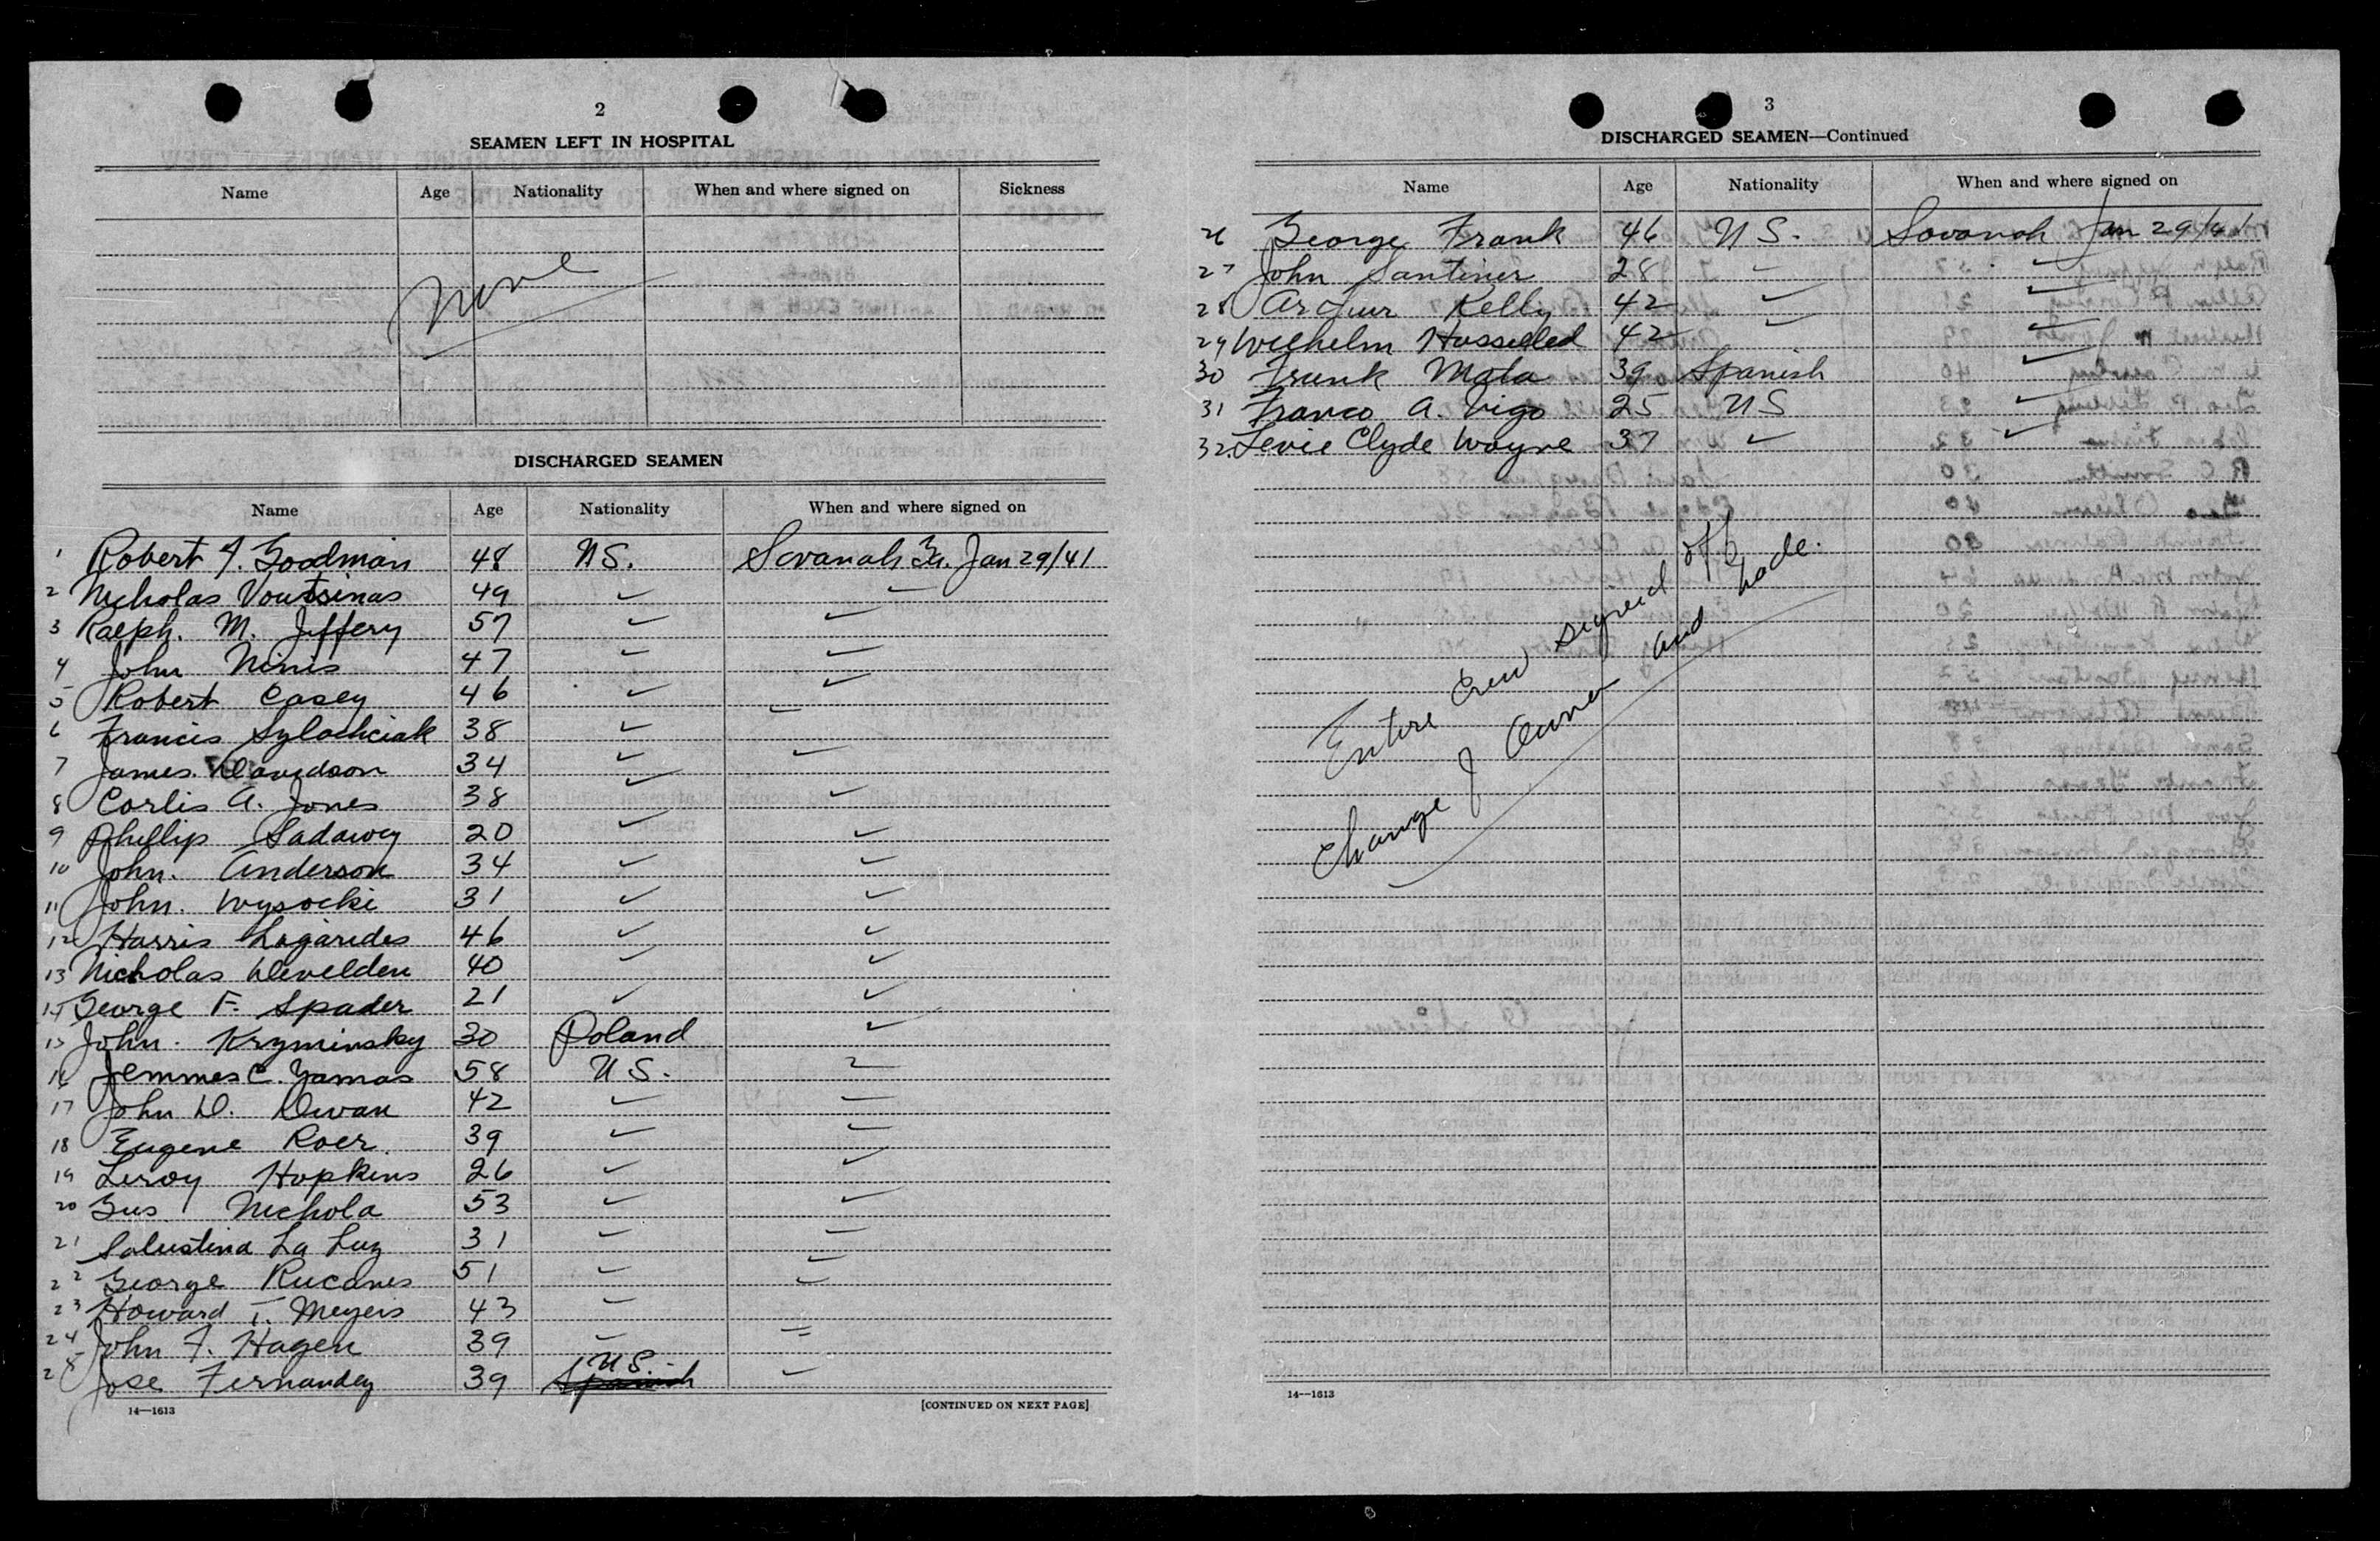 2
SEAMEN LEFT IN HOSPITAL
Name Age Nationality When and where signed on Sickness
None
DISCHARGED SEAMEN
Name Age Nationality When and where signed on
1 Robert J. Goodman 48 US. Savanah Ga. Jan 29/41
2 Nicholas Voutsinas 49 ✓ ✓
3 Ralph. M. Jeffery 57 ✓ ✓
4 John Ninis 47 ✓ ✓
5 Robert Casey 46 ✓ ✓
6 Francis 38 ✓ ✓
7 James Davidson 34 ✓ ✓
8 Corlis A. Jones 38 ✓ ✓
9 Phillip Sadawey 20 ✓ ✓
10 John. Anderson 34 ✓ ✓
11 John. Wysocki 31 ✓ ✓
12 Harris Lagarides 46 ✓ ✓
13 Nicholas Develden 40 ✓ ✓
14 George F. Spader 21 ✓ ✓
15 John. Kryminsky 30 Poland ✓
16 Jemmes C. Yamas 58 U S. ✓
17 John D. Dwan 42 ✓ ✓
18 Eugene Roer. 39 ✓ ✓
19 Leroy Hopkins 26 ✓ ✓
20 Gus Nichola 53 ✓ ✓
21 Salustina La Luz 31 ✓ ✓
22 George Rucanes 51 ✓ ✓
23 Howard T. Meyers 43 ✓ ✓
24 John F. Hagen 39 ✓ ✓
25 Jose Fernandez 39 Spanish U S. ✓
14—1613
[CONTINUED ON NEXT PAGE]
3
DISCHARGED SEAMEN—Continued
Name Age Nationality When and where signed on
26 George Frank 46 U S. Savanah Jan 29/41
27 John Santiner 28 ✓ ✓
28 Arthur Kelly 42 ✓ ✓
29 Wilhelm Hasselled 42 ✓ ✓
30 Frank Mala 39 Spanish ✓
31 Franco A. Vigo 25 U S ✓
32. Levie Clyde Wayne 37 ✓ ✓
Entire Crew signed off
Change of Owner and trade.
14—1613